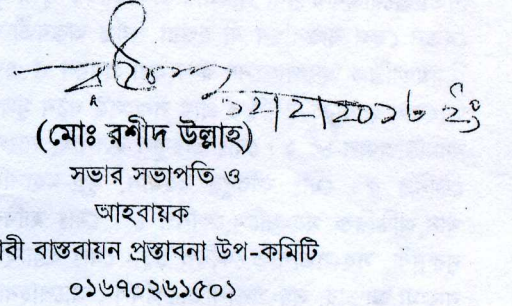 ১২/২/২০১৬ ইং
(মোঃ রশীদ উল্লাহ)
সভার সভাপতি ও
আহবায়ক
াবী বাস্তবায়ন প্রস্তাবনা উপ-কমিটি
০১৬৭০২৬১৫০১